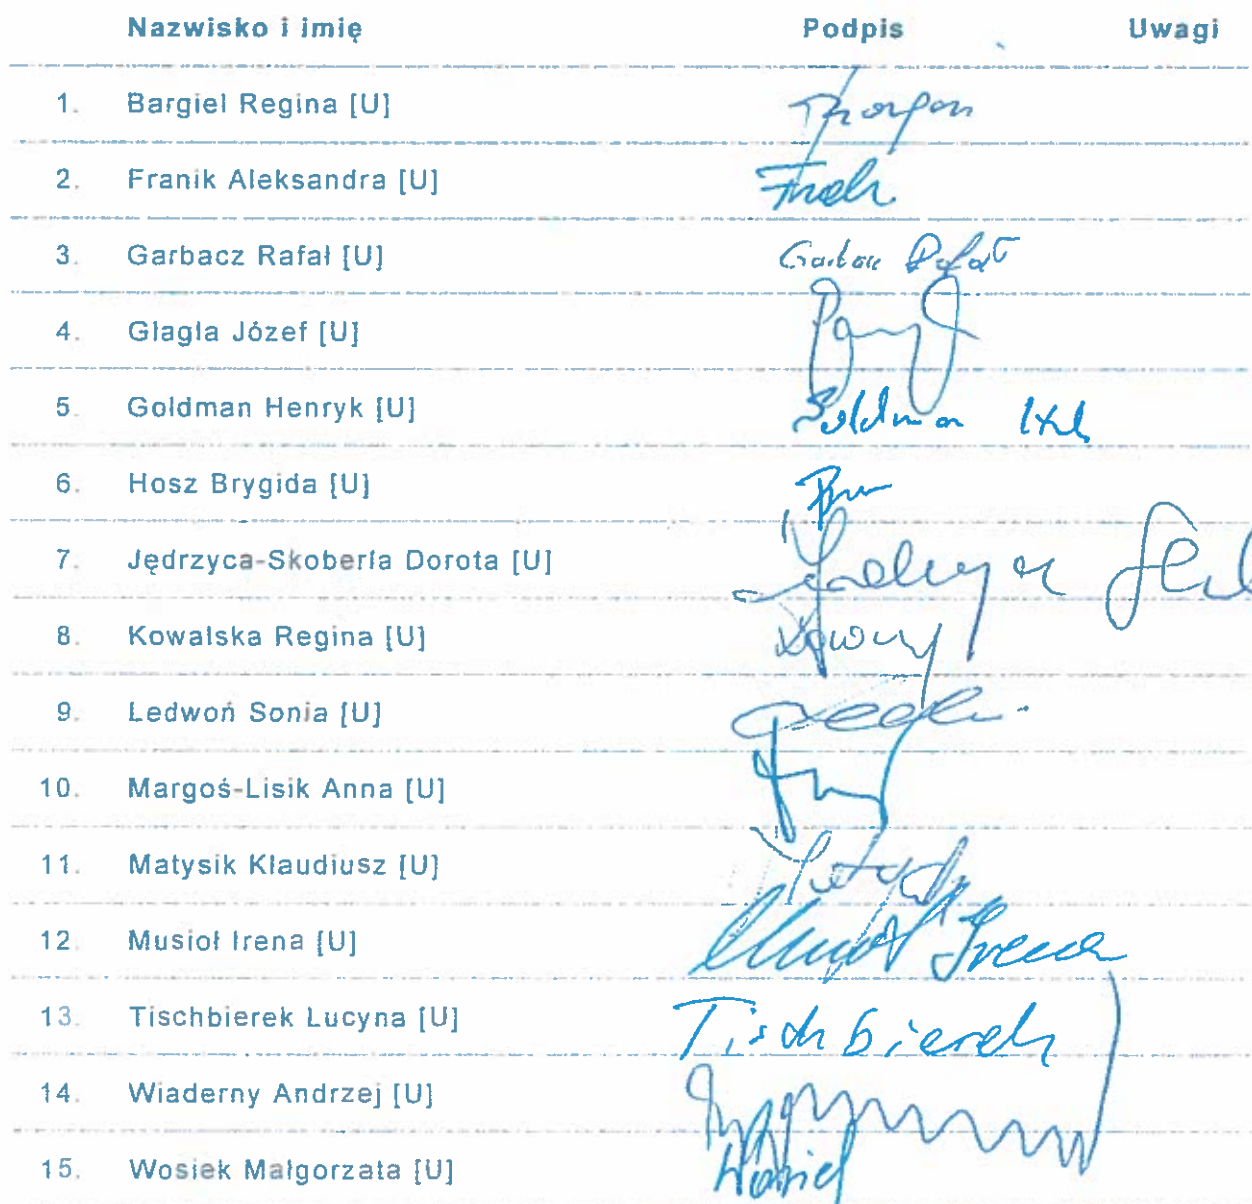 Nazwisko i imię Podpis Uwagi
1. Bargiel Regina [U]
2. Franik Aleksandra [U]
3. Garbacz Rafał [U] Rafał
4. Glagla Józef [U]
5. Goldman Henryk [U] Goldman
6. Hosz Brygida [U]
7. Jędrzyca-Skoberla Dorota [U]
8. Kowalska Regina [U]
9. Ledwoń Sonia [U]
10. Margoś-Lisik Anna [U]
11. Matysik Klaudiusz [U]
12. Musioł Irena [U] Musioł Irena
13. Tischbierek Lucyna [U] Tischbierek
14. Wiaderny Andrzej [U]
15. Wosiek Małgorzata [U] Wosiek